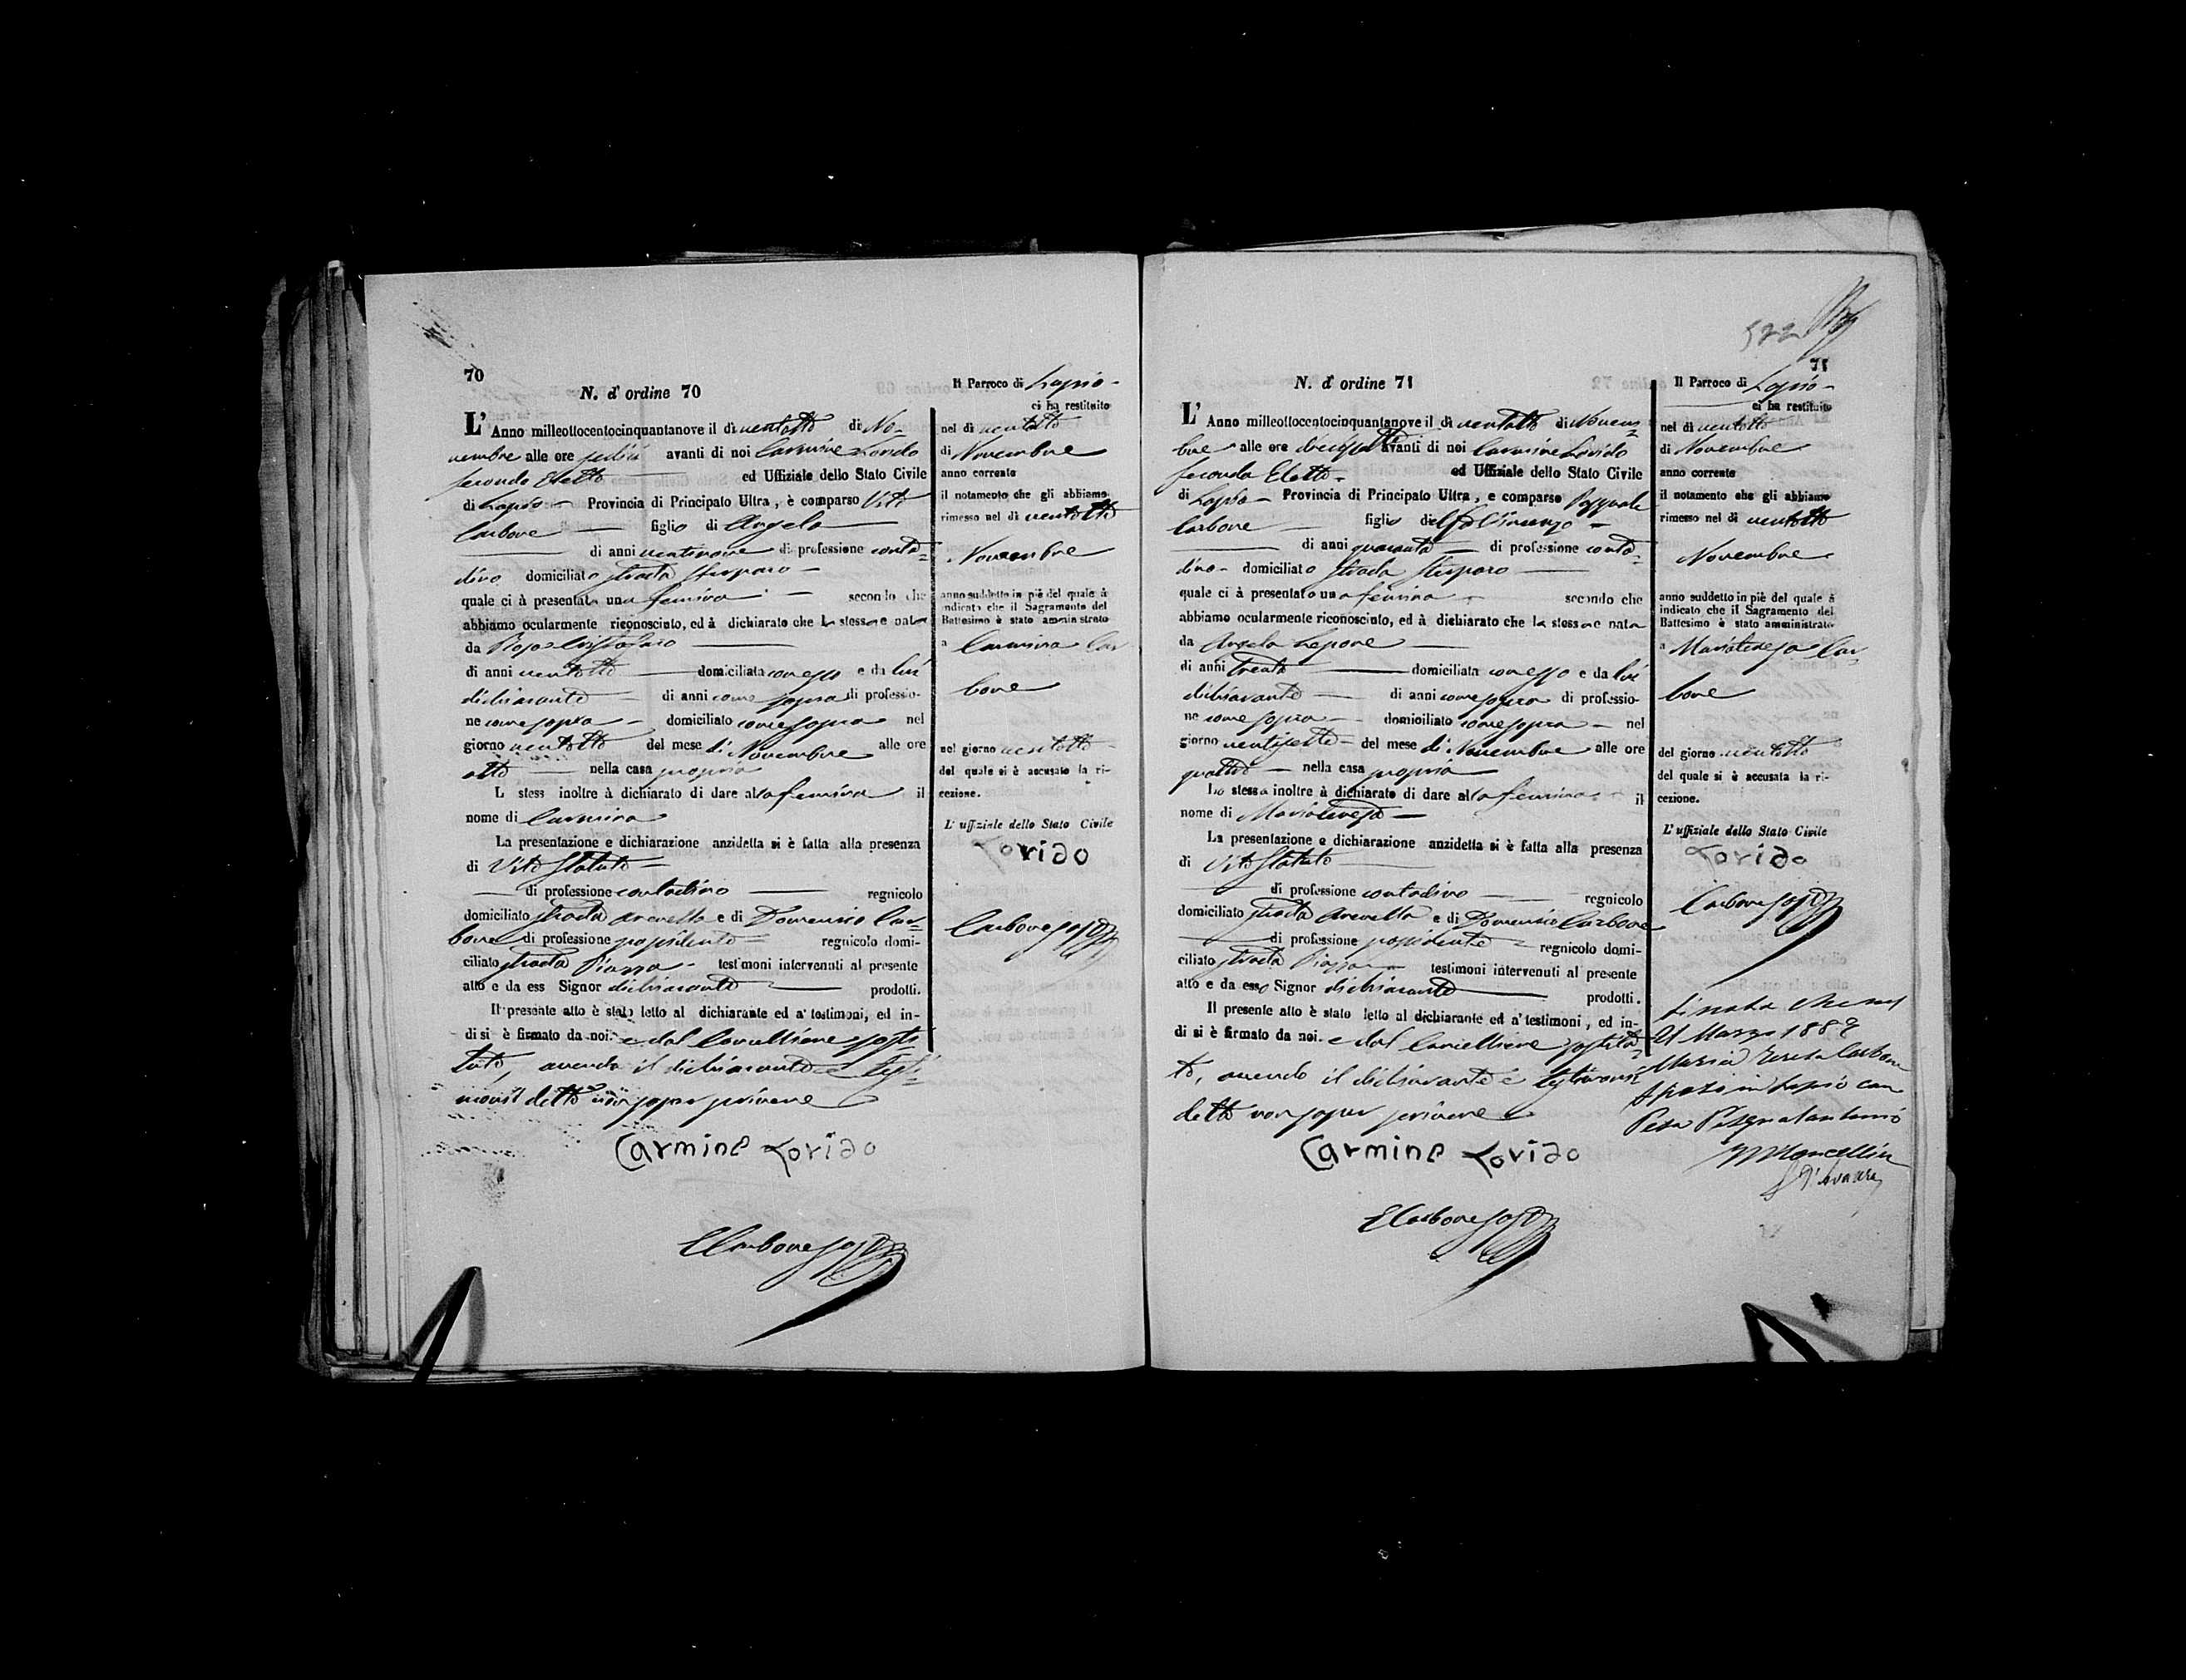 70
N. d' ordine 70
L' Anno milleottocentocinquantanove il dì ventotto di No-
vembre alle ore sedici avanti di noi Carmine Lorido
secondo Eletto ed Uffiziale dello Stato Civile
di Lapio Provincia di Principato Ultra, è comparso Vito
Carbone figlio di Angelo
di anni ventinove di professione conta=
dino domiciliato strada
quale ci à presentata una femina secondo che
abbiamo ocularmente riconosciuto, ed à dichiarato che la stessa è nata
da Rosa Cristofaro
di anni ventotto domiciliata con esso e da lui
dichiarante di anni come sopra di professio-
ne come sopra domiciliato come sopra nel
giorno ventotto del mese di Novembre alle ore
otto nella casa propria
L stess inoltre à dichiarato di dare alla femina il
nome di Carmina
La presentazione e dichiarazione anzidetta si è fatta alla presenza
di Vito Statuto
di professione contadino regnicolo
domiciliato strada e di Domenico Car=
bone di professione possidente regnicolo domi-
ciliato strada Piazza testimoni intervenuti al presente
atto e da ess Signor dichiarante prodotti.
Il presente atto è stato letto al dichiarante ed a' testimoni, ed in-
di si è firmato da noi e dal Cancelliere sosti-
tuto, avendo il dichiarante e testi-
monii detto non saper scrivere
Carmine Lorido
Carbone
Il Parroco di Lapio
ci ha restituito
nel dì ventotto
di Novembre
anno corrente
il notamento che gli abbiamo
rimesso nel dì ventotto
Novembre
anno suddetto in piè del quale à
indicato che il Sagramento del
Battesimo è stato amministrato
a Carmina Car
bone
nel giorno ventotto
del quale si è accusato la ri-
cezione.
L' uffiziale dello Stato Civile
Lorido
Carbone
522
71
N. d' ordine 71
L' Anno milleottocentocinquantanove il dì ventotto di Novem=
bre alle ore avanti di noi Carmine Lorido
secondo Eletto ed Uffiziale dello Stato Civile
di Lapio Provincia di Principato Ultra, e comparso Pasquale
Carbone figlio del fu Vincenzo
di anni quaranta di professione conta=
dino domiciliato strada
quale ci à presentato una femina secondo che
abbiamo ocularmente riconosciuto, ed à dichiarato che la stessa è nata
da Angela Lepore
di anni trenta domiciliata con esso e da lui
dichiarante di anni come sopra di professio-
ne come sopra domiciliato come sopra nel
giorno ventisette del mese di Novembre alle ore
quattro nella casa propria
Lo stesso inoltre à dichiarato di dare alla femina il
nome di Mariateresa
La presentazione e dichiarazione anzidetta si è fatta alla presenza
di Vito Statuto
di professione contadino regnicolo
domiciliato strada e di Domenico Carbone
di professione possidente regnicolo domi-
ciliato strada Piazza testimoni intervenuti al presente
atto e da esso Signor dichiarante prodotti.
Il presente atto è stato letto al dichiarante ed a' testimoni, ed in-
di si è firmato da noi e dal Cancelliere sostitu=
to, avendo il dichiarante e testimonii
detto non saper scrivere
Carmine Lorido
Carbone
Il Parroco di Lapio
ci ha restituito
nel dì ventotto
di Novembre
anno corrente
il notamento che gli abbiamo
rimesso nel dì ventotto
Novembre
anno suddetto in piè del quale à
indicato che il Sagramento del
Battesimo è stato amministrato
a Mariateresa Car=
bone
del giorno ventotto
del quale si è accusata la ri-
cezione.
L' uffiziale dello Stato Civile
Lorido
Carbone
21 Marzo
Maria Teresa Carbone
in Lapio con